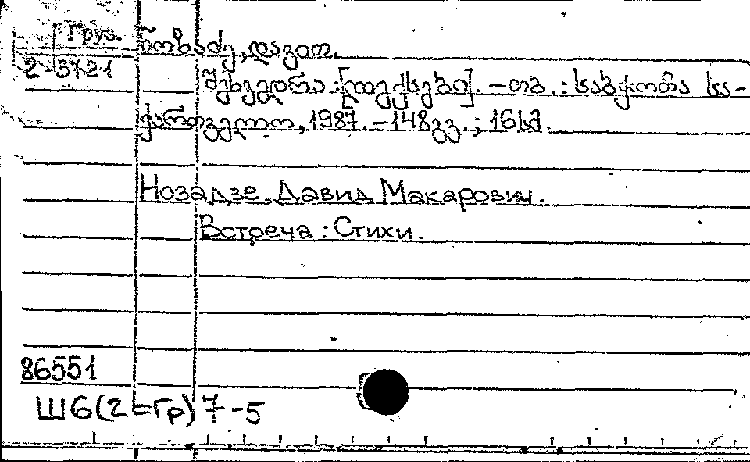 Груз. ნოზაძე, დავით.
2-3721
შეხვედრა : [ლექსები]. – თბ. : საბჭოთა სა-
ქართველო, 1987. – 148გვ. ; 16სმ.
Нозадзе, Давид Макарович.
Встреча : Стихи.
86551
Ш6(2=Гр)7-5